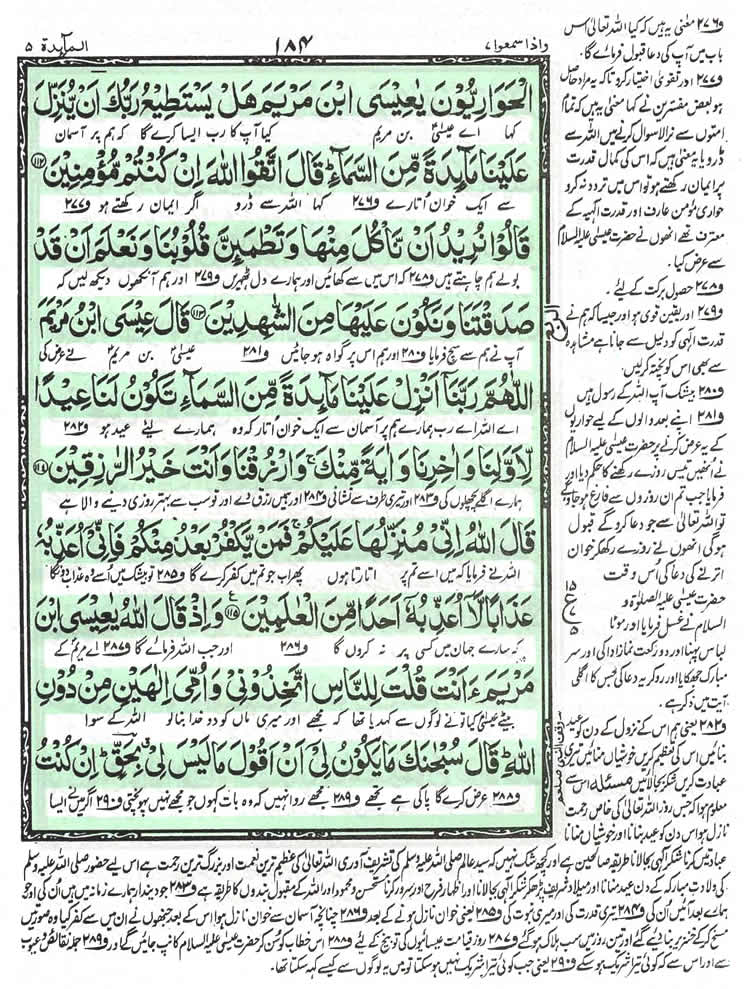 المآىِٕدة ۵
۱۸۴
واذا سمعوا ۷
الْحَوَارِیُّوْنَ یٰعِیْسَى ابْنَ مَرْیَمَ هَلْ یَسْتَطِیْعُ رَبُّكَ اَنْ یُّنَزِّلَ
کہا اے عیسیٰ بن مریم کیا آپ کا رب ایسا کرے گا کہ ہم پر آسمان
عَلَیْنَا مَآىِٕدَةً مِّنَ السَّمَآءِؕ قَالَ اتَّقُوا اللّٰهَ اِنْ كُنْتُمْ مُّؤْمِنِیْنَ ۱۱۲
سے ایک خوان اُتارے و۲۷۶ کہا اللہ سے ڈرو اگر ایمان رکھتے ہو و۲۷۷
قَالُوْا نُرِیْدُ اَنْ نَّاْكُلَ مِنْهَا وَ تَطْمَىِٕنَّ قُلُوْبُنَا وَ نَعْلَمَ اَنْ قَدْ
بولے ہم چاہتے ہیں و۲۷۸ کہ اس میں سے کھائیں اور ہمارے دل ٹھہریں و۲۷۹ اور ہم آنکھوں دیکھ لیں کہ
صَدَقْتَنَا وَ نَكُوْنَ عَلَیْهَا مِنَ الشّٰهِدِیْنَ ۱۱۳ قَالَ عِیْسَى ابْنُ مَرْیَمَ
آپ نے ہم سے سچ فرمایا و۲۸۰ اور ہم اس پر گواہ ہوجائیں و۲۸۱ عیسیٰ بن مریم نے عرض کی
اللّٰهُمَّ رَبَّنَاۤ اَنْزِلْ عَلَیْنَا مَآىِٕدَةً مِّنَ السَّمَآءِ تَكُوْنُ لَنَا عِیْدًا
اے اللہ اے رب ہمارے ہم پر آسمان سے ایک خوان اُتار کہ وہ ہمارے لئے عید ہو و۲۸۲
لِّاَوَّلِنَا وَ اٰخِرِنَا وَ اٰیَةً مِّنْكَۚ وَ ارْزُقْنَا وَ اَنْتَ خَیْرُ الرّٰزِقِیْنَ ۱۱۴
ہمارے اگلے پچھلوں کی و۲۸۳ اور تیری طرف سے نشانی و۲۸۴ اور ہمیں رزق دے اور تو سب سے بہتر روزی دینے والا ہے
قَالَ اللّٰهُ اِنِّیْ مُنَزِّلُهَا عَلَیْكُمْۚ فَمَنْ یَّكْفُرْ بَعْدُ مِنْكُمْ فَاِنِّیْۤ اُعَذِّبُهٗ
اللہ نے فرمایا کہ میں اسے تم پر اتارتا ہوں پھر اب جو تم میں کفر کرے گا و۲۸۵ تو بیشک میں اُسے وہ عذاب دونگا
عَذَابًا لَّاۤ اُعَذِّبُهٗۤ اَحَدًا مِّنَ الْعٰلَمِیْنَ ۱۱۵ وَ اِذْ قَالَ اللّٰهُ یٰعِیْسَى ابْنَ
کہ سارے جہان میں کسی پر نہ کروں گا و۲۸۶ اور جب اللہ فرمائے گا و۲۸۷ اے مریم کے
مَرْیَمَ ءَاَنْتَ قُلْتَ لِلنَّاسِ اتَّخِذُوْنِیْ وَ اُمِّیَ اِلٰهَیْنِ مِنْ دُوْنِ
بیٹے عیسیٰ کیا تو نے لوگوں سے کہدیا تھا کہ مجھے اور میری ماں کو دو خدا بنالو اللہ کے سوا
اللّٰهِؕ قَالَ سُبْحٰنَكَ مَا یَكُوْنُ لِیْۤ اَنْ اَقُوْلَ مَا لَیْسَ لِیْۗ بِحَقٍّؕ اِنْ كُنْتُ
و۲۸۸ عرض کرے گا پاکی ہے تجھے و۲۸۹ مجھے روا نہیں کہ وہ بات کہوں جو مجھے نہیں پہونچتی و۲۹۰ اگر میں نے ایسا
و۲۷۶ معنی یہ ہیں کہ کیا اللہ تعالیٰ اس
باب میں آپ کی دعا قبول فرمائے گا۔
و۲۷۷ اور تقوٰی اختیار کرو تاکہ یہ مراد حاصل
ہو بعض مفسرین نے کہا معنی یہ ہیں کہ تمام
امتوں سے نرالا سوال کرنے میں اللہ سے
ڈرو یا یہ معنی ہیں کہ اس کی کمال قدرت
پر ایمان رکھتے ہو تو اس میں تردد نہ کرو
حواری مؤمن عارف اور قدرت الٰہیہ کے
معترف تھے انھوں نے حضرت عیسٰی علیہ السلام
سے عرض کیا۔
و۲۷۸ حصول برکت کے لئے۔
و۲۷۹ اور یقین قوی ہو اور جیسا کہ ہم نے
قدرت الٰہی کو دلیل سے جانا ہے مشاہدہ
سے بھی اس کو پختہ کرلیں۔
و۲۸۰ بیشک آپ اللہ کے رسول ہیں
و۲۸۱ اپنے بعد والوں کے لیے حواریوں
کے یہ عرض کرنے پر حضرت عیسٰی علیہ السلام
نے انھیں تیس روزے رکھنے کا حکم دیا اور
فرمایا جب تم ان روزوں سے فارغ ہو جاؤگے
تو اللہ تعالیٰ سے جو دعا کروگے قبول
ہوگی انھوں نے روزے رکھکر خوان
اترنے کی دعا کی اُس وقت
حضرت عیسٰی علیہ الصلوٰۃ و
السلام نے غسل فرمایا اور موٹا
لباس پہنا اور دو رکعت نماز ادا کی اور سر
مبارک جھکایا اور رو کر یہ دعا کی جس کا اگلی
آیت میں ذکر ہے۔
و۲۸۲ یعنی ہم اس کے نزول کے دن کو عید
بنائیں اس کی تعظیم کریں خوشیاں منائیں تیری
عبادت کریں شکر بجا لائیں مسئلہ اس سے
معلوم ہوا کہ جس روز اللہ تعالیٰ کی خاص رحمت
نازل ہو اس دن کو عید بنانا اور خوشیاں منانا
عبادتیں کرنا شکر الٰہی بجا لانا طریقۂ صالحین ہے اور کچھ شک نہیں کہ سید عالم صلی اللہ علیہ وسلم کی تشریف آوری اللہ تعالیٰ کی عظیم ترین نعمت اور بزرگ ترین رحمت ہے اس لیے حضور صلی اللہ علیہ وسلم
کی ولادت مبارکہ کے دن عید منانا اور میلاد شریف پڑھ کر شکر الٰہی بجا لانا اور اظہار فرح اور سرور کرنا مستحسن و محمود اور اللہ کے مقبول بندوں کا طریقہ ہے و۲۸۳ جو دیندار ہمارے زمانہ میں ہیں اُن کی اور جو
ہمارے بعد آئیں اُن کی و۲۸۴ تیری قدرت کی اور میری نبوت کی و۲۸۵ یعنی خوان نازل ہونے کے بعد و۲۸۶ چنانچہ آسمان سے خوان نازل ہوا اس کے بعد جنھوں نے ان میں سے کفر کیا وہ صورتیں
مسخ کرکے خنزیر بنا دیے گئے اور تین روز میں سب ہلاک ہوگئے و۲۸۷ روز قیامت عیسائیوں کی توبیخ کے لئے و۲۸۸ اس خطاب کو سُن کر حضرت عیسٰی علیہ السلام کانپ جائیں گے اور و۲۸۹ جملہ نقائص و عیوب
سے اور اس سے کہ کوئی تیرا شریک ہو سکے و۲۹۰ یعنی جب کوئی تیرا شریک نہیں ہو سکتا تو میں یہ لوگوں سے کیسے کہہ سکتا تھا۔
۱۵
ع
۷
۵